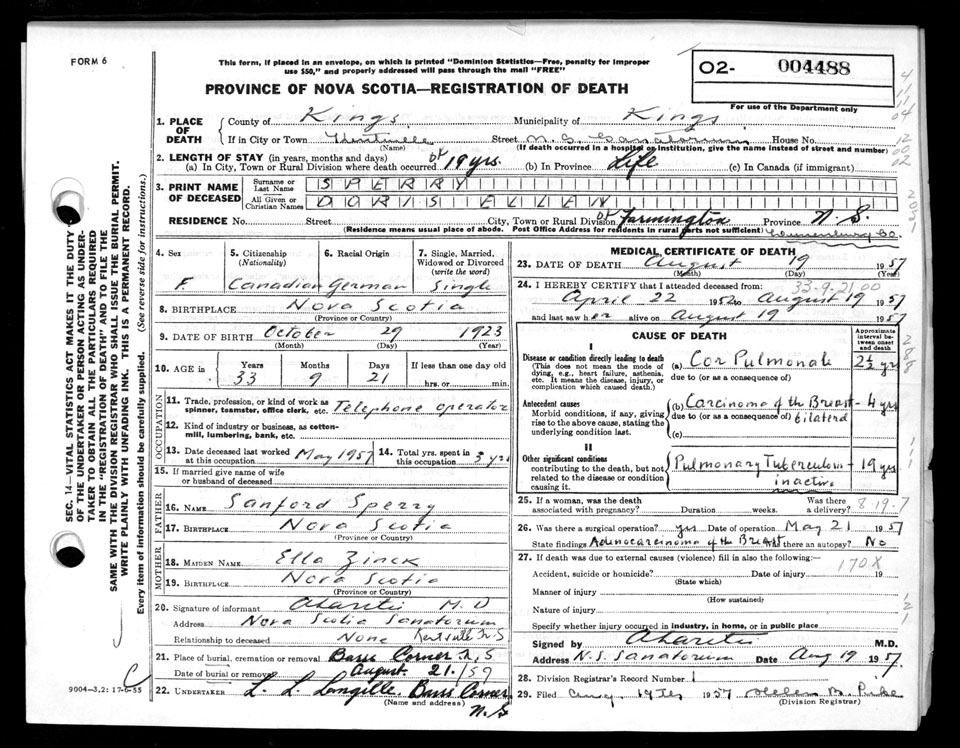 FORM 6
This form, if placed in an envelope, on which is printed "Dominion Statistics—Free, penalty for improper
use $50," and properly addressed will pass through the mail "FREE"
PROVINCE OF NOVA SCOTIA—REGISTRATION OF DEATH
O2- 004488
For use of the Department only
1. PLACE OF DEATH
County of Kings Municipality of Kings
If in City or Town Kentville Street N.S. Sanatorium House No.
(Name) (If death occurred in a hospital or institution, give the name instead of street and number)
2. LENGTH OF STAY (in years, months and days)
(a) In City, Town or Rural Division where death occurred 19 yrs. (b) In Province Life (c) In Canada (if immigrant)
3. PRINT NAME OF DECEASED
Surname or Last Name SPERRY
All Given or Christian Names DORIS ELLEN
RESIDENCE No. Street City, Town or Rural Division of Farmington Province N.S.
(Residence means usual place of abode. Post Office Address for residents in rural parts not sufficient) Lunenburg Co.
4. Sex F
5. Citizenship (Nationality) Canadian
6. Racial Origin German
7. Single, Married, Widowed or Divorced (write the word) Single
8. BIRTHPLACE Nova Scotia
(Province or Country)
9. DATE OF BIRTH October 29 1923
(Month) (Day) (Year)
10. AGE in Years Months Days If less than one day old
33 9 21 hrs. or min.
OCCUPATION
11. Trade, profession, or kind of work as spinner, teamster, office clerk, etc. Telephone operator
12. Kind of industry or business, as cotton-mill, lumbering, bank, etc.
13. Date deceased last worked at this occupation May 1957
14. Total yrs. spent in this occupation 3 yrs
15. If married give name of wife or husband of deceased
FATHER
16. NAME Sanford Sperry
17. BIRTHPLACE Nova Scotia
(Province or Country)
MOTHER
18. MAIDEN NAME Ella Zinck
19. BIRTHPLACE Nova Scotia
(Province or Country)
20. Signature of informant M.D
Address Nova Scotia Sanatorium
Relationship to deceased None Kentville N.S
21. Place of burial, cremation or removal Barss Corner N.S
Date of burial or removal August 21/57
22. UNDERTAKER L. L. Langille, Barss Corner
(Name and address) N.S
MEDICAL CERTIFICATE OF DEATH
23. DATE OF DEATH August 19 1957
(Month) (Day) (Year)
33-9-21 00
24. I HEREBY CERTIFY that I attended deceased from:
April 22 1952 to August 19 1957
and last saw her alive on August 19 1957
CAUSE OF DEATH
Approximate interval between onset and death
I
Disease or condition directly leading to death
(This does not mean the mode of dying, e.g., heart failure, asthenia, etc. It means the disease, injury, or complication which caused death.)
(a) Cor Pulmonale 2½ yrs
due to (or as a consequence of)
Antecedent causes
Morbid conditions, if any, giving rise to the above cause, stating the underlying condition last.
(b) Carcinoma of the Breast - 4 yrs
due to (or as a consequence of) bilateral
(c)
II
Other significant conditions
contributing to the death, but not related to the disease or condition causing it.
Pulmonary Tuberculosis - 19 yrs
inactive
25. If a woman, was the death associated with pregnancy? Duration weeks. Was there a delivery?
8 19. 7
26. Was there a surgical operation? yes Date of operation May 21 1957
State findings Adenocarcinoma of the Breast there an autopsy? No
27. If death was due to external causes (violence) fill in also the following:—
170X
Accident, suicide or homicide? Date of injury 19
(State which)
Manner of injury
(How sustained)
Nature of injury
Specify whether injury occurred in industry, in home, or in public place
Signed by M.D.
Address N.S. Sanatorium Date Aug 19 1957
28. Division Registrar's Record Number 1
29. Filed Aug 19th 1957 Helen M.
(Division Registrar)
SEC. 14—VITAL STATISTICS ACT MAKES IT THE DUTY
OF THE UNDERTAKER OR PERSON ACTING AS UNDER-
TAKER TO OBTAIN ALL THE PARTICULARS REQUIRED
IN THE "REGISTRATION OF DEATH" AND TO FILE THE
SAME WITH THE DIVISION REGISTRAR WHO SHALL ISSUE THE BURIAL PERMIT.
WRITE PLAINLY WITH UNFADING INK. THIS IS A PERMANENT RECORD.
Every item of information should be carefully supplied. (See reverse side for instructions.)
9004-3.2: 17-6-55